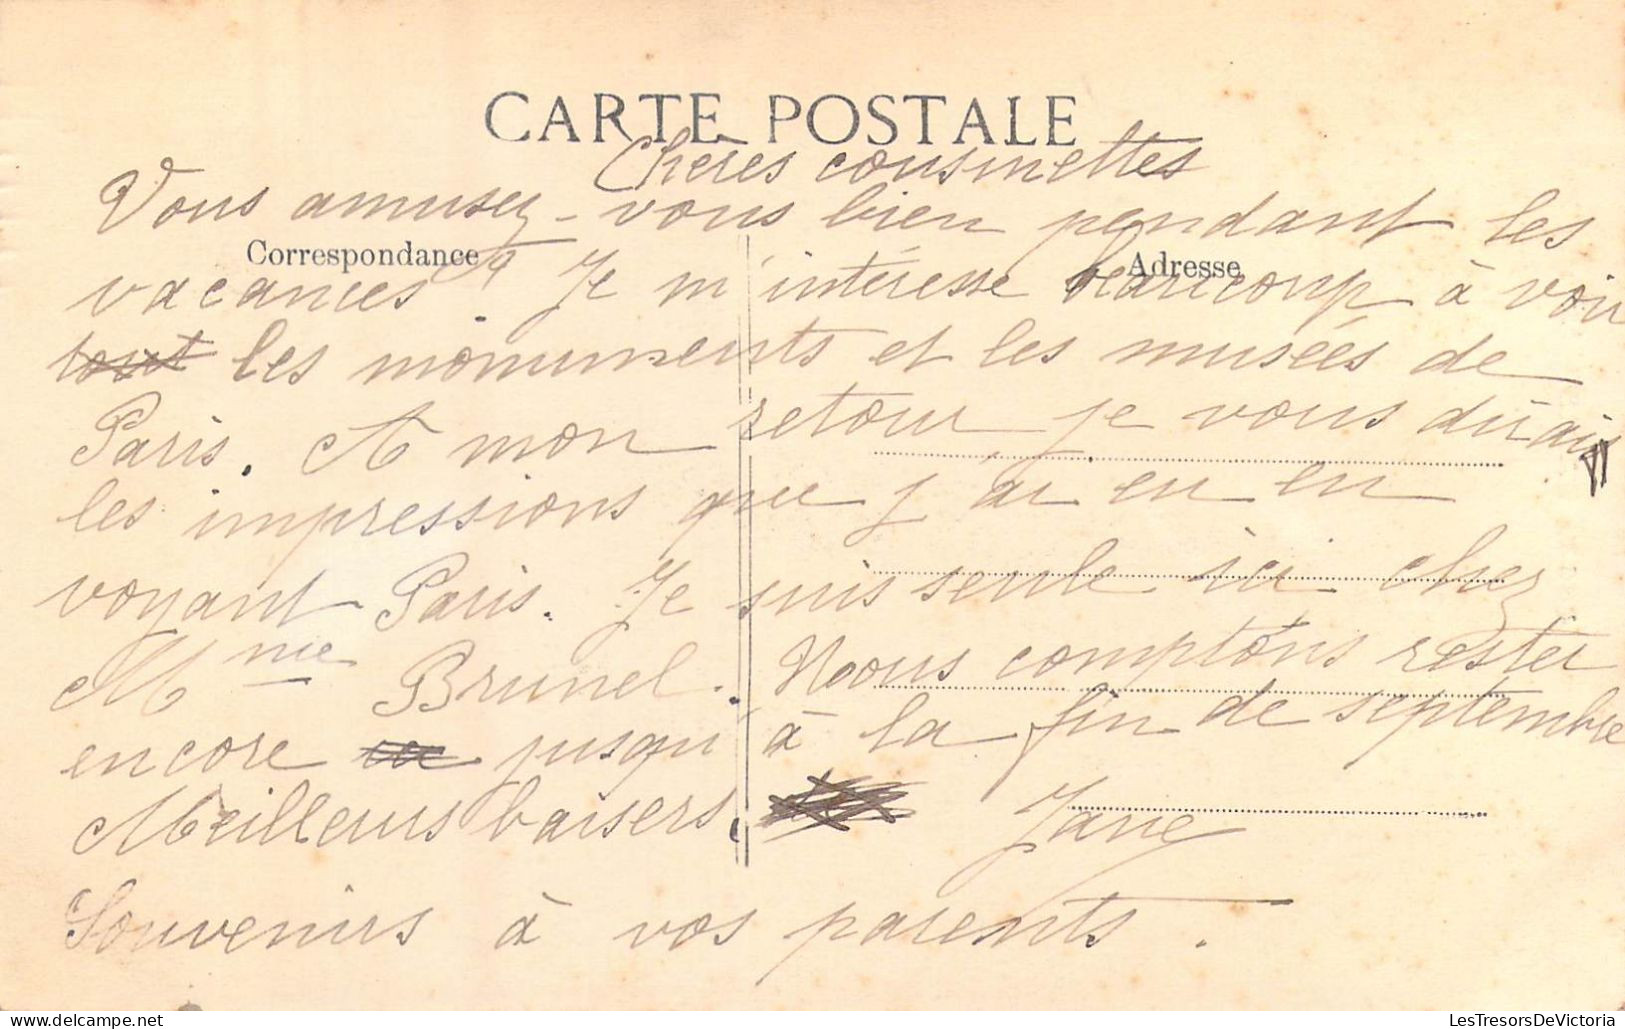 CARTE POSTALE
Chères cousinettes
Vous amusez-vous bien pendant les
Correspondance
Adresse
vacances ? Je m'intéresse beaucoup à voir
tout les monuments et les musées de
Paris. A mon retour je vous dirais
les impressions que j'ai eu en
voyant Paris. Je suis seule ici chez
Mme Brunel. Nous comptons rester
encore jusqu'à la fin de septembre
Meilleurs baisers. Jane
Souvenirs à vos parents.
LesTresorsDeVictoria